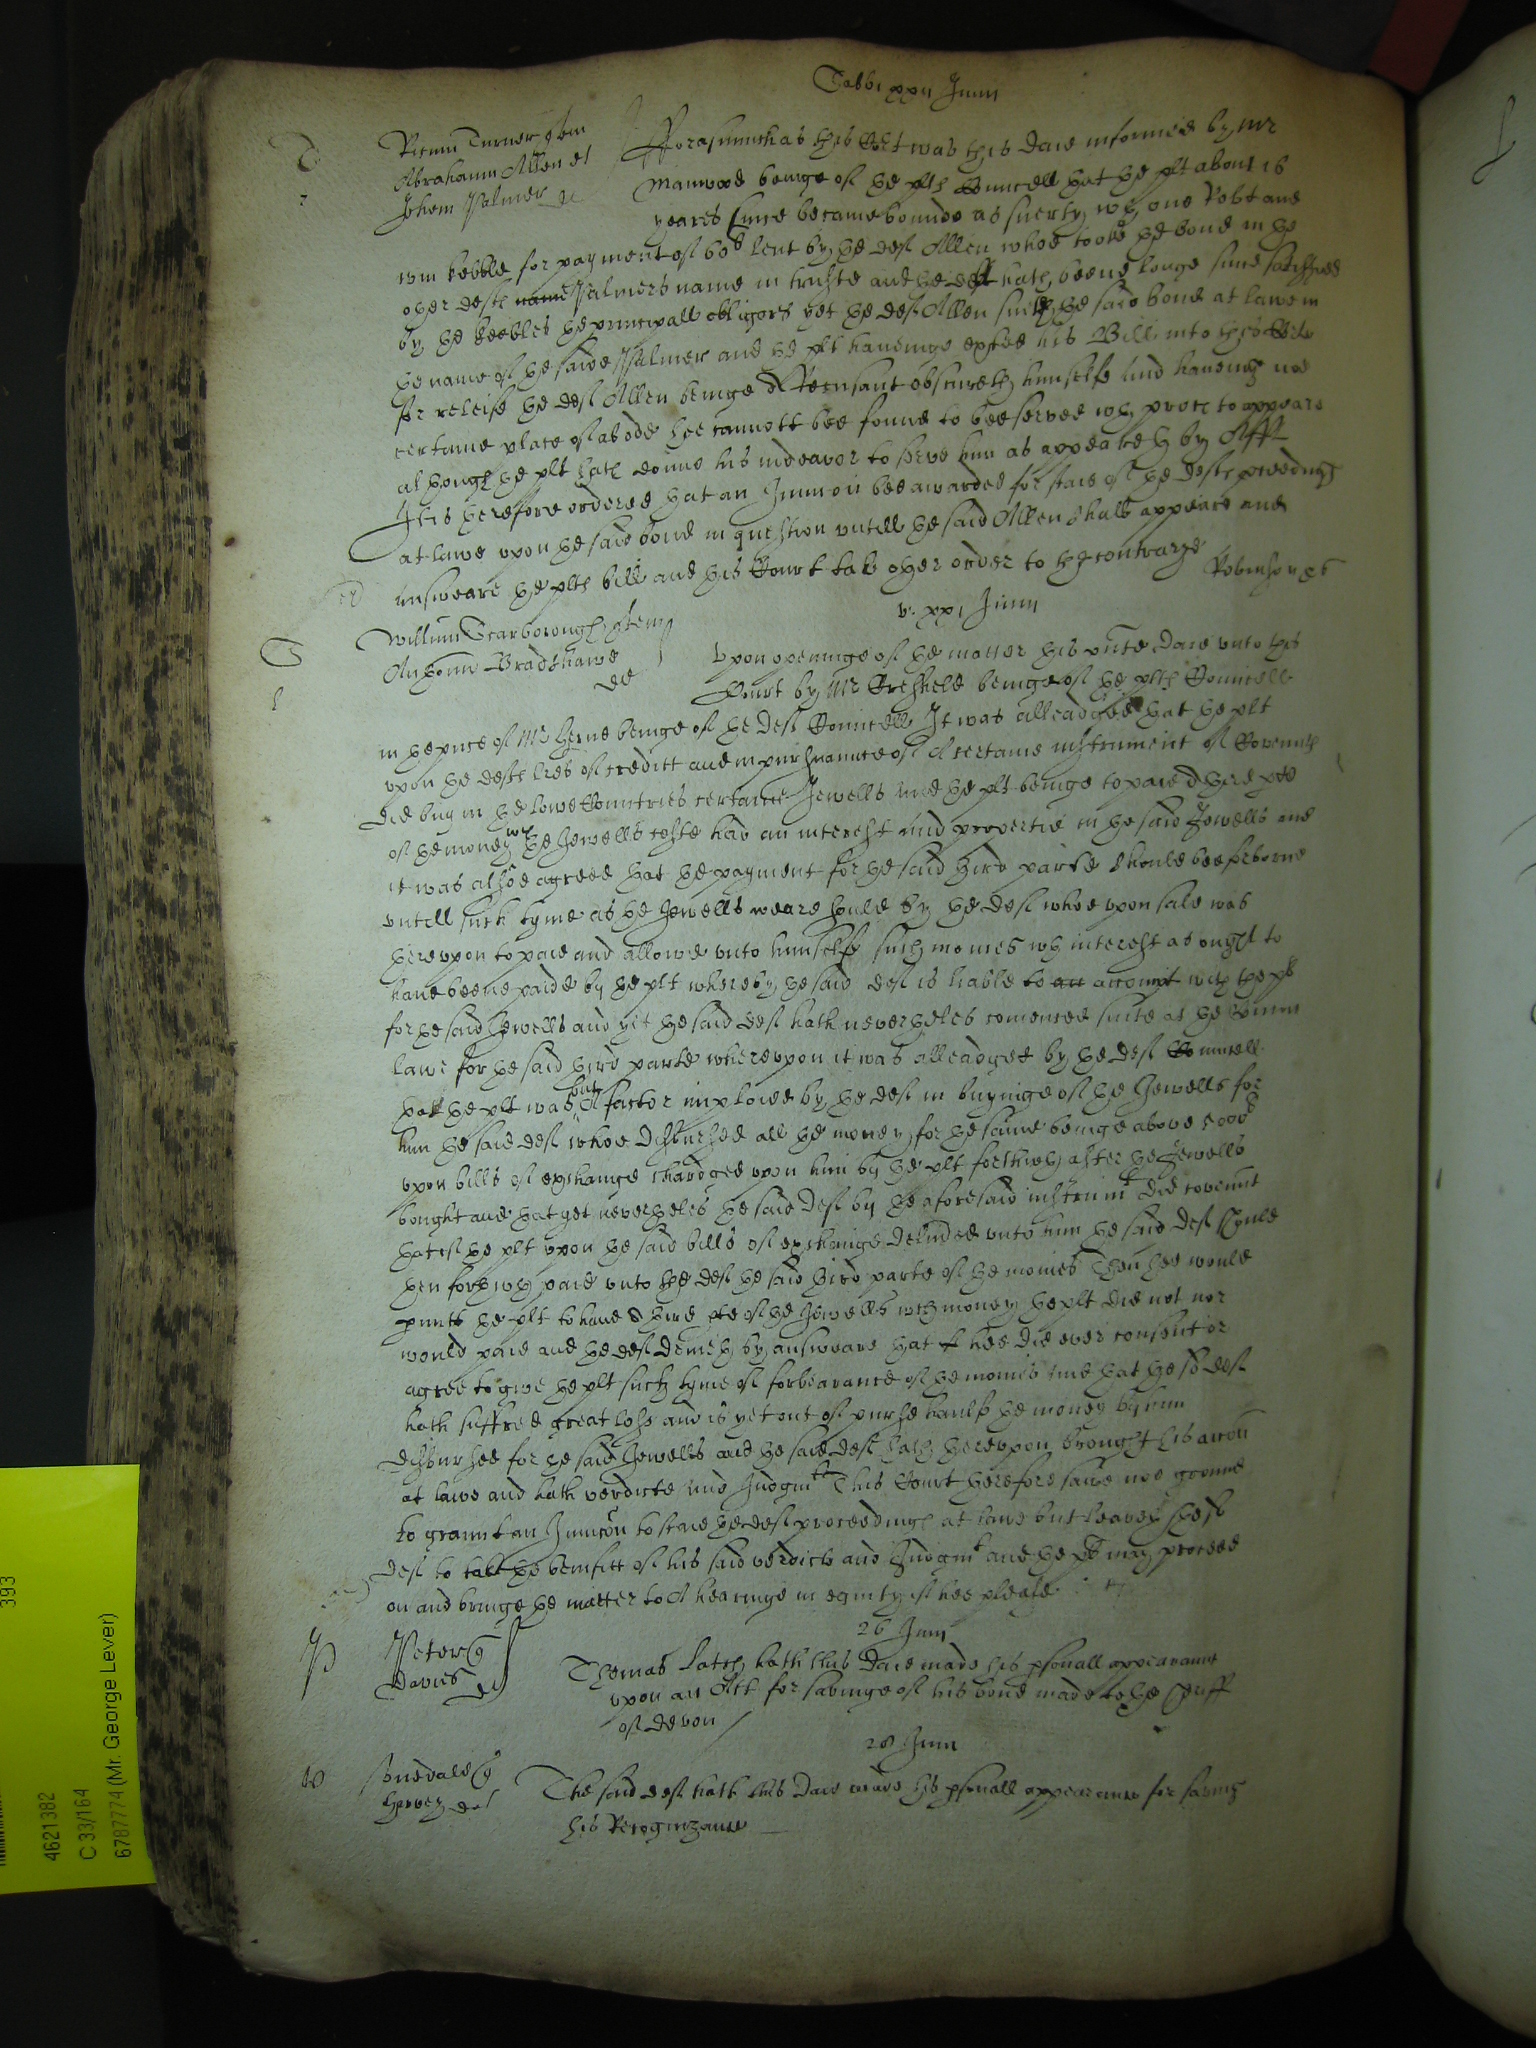 Sabbi xxii Junii
T
Ricum Turner quem
Abrahamu Allen et
Johem Palmer de
Forasmuch as this Cort was this daie informed by Mr
Manwood beinge of the plts Councell that the plt about 16
yeares since became bounde as suerty wth one Robt and
Wm Kebble for payment of 60l lent by the deft Allen whoe tooke the bond in the
other defts name Palmers name in truste and the debt hath beene longe since satisfied
by the Keebles the principall obligors yet the deft Allen sueth the said bond at lawe in
the name of the saide Palmer and the plt haveinge exhted his Bill into this Corte
for releife the deft Allen beinge A Recusant obscureth himselfe and haveing noe
certaine place of abode hee cannott bee found to bee served wth proces to appeare
although the plt hath donne his indeavor to serve him as appeareth by Afft
It is therefore ordered that an Iniuncon bee awarded for staie of the defts proceedings
at lawe upon the said bond in question untill the said Allen shall appeare and
answeare the plts bill and this Court take other order to the contrarye
v. xxi Junii
T
Willum Scarborough quem
Anthoniu Bradshawe
de
Upon openinge of the matter this pnte daie unto this
Court by Mr Cresheld beinge of the plts Councell
in the pnce of Mr Herne beinge of the defts Councell It was alleadged that the plt
upon the defts lres of creditt and in pursuannce of A certaine instrument of Covennts
did buy in the lowe Countries certaine Jewells and the plt beinge to paie A third pte
of the money wch the Jewells coste had an interest and propertie in the said Jewells and
it was alsoe agreed that the payment for the said third parte should bee forborne
untill such tyme as the Jewells weare sould by the deft whoe upon sale was
thereupon to paie and allowe unto himselfe such monies wth interest as ought to
have beene paide by the plt whereby the said deft is liable to an accompt with the plt
for the said Jewells and yet the said deft hath nevertheles comenced suite at the Comon
lawe for the said third parte whereupon it was alleadged by the deft Councell
that the plt was but A factor imploied by the deft in buyinge of the Jewells for
him the said deft whoe disbursed all the money for the same beinge above 5000l
upon bills of exchange chardged upon him by the plt forthwith after the Jewells
bought and that yet nevertheles the said deft by the aforesaid instrumt did covennt
that if the plt upon the said bills of exchange delivred unto him the said deft should
then forthwth paie unto the deft the said third parte of the monies Then hee would
pmitt the plt to have A third pte of the Jewells wch money the plt did not nor
would paie and the deft denieth by answeare that hee did ever consent or
agree to give the plt such tyme of forbearance of the monies and that the sd deft
hath suffred great losse and is yet out of purse halfe the money by him
disbursed for the said Jewells and the said deft hath thereupon brought his accon
at lawe and hath verdicte and Judgmt This Court therefore sawe noe grounde
to graunt an Iniuncon to staie the deft proceedings at lawe but leaveth the sd
deft to take the benifitt of his said verdicte and Judgmt and the plt may proceed
on and bringe the matter to A hearinge in equity if hee please
26 Junii
P
Peter q
Davies
de
Thomas Latch hath this daie made his psonall appearaunce
upon an Att for savinge of his bond made to the Sheriff
of Devon
28 Junii
Hervey de
The said deft hath this daie made his psonall appearance for saving
his Recognizance
393
4621382
C 33/164
6787774 (Mr. George Lever)